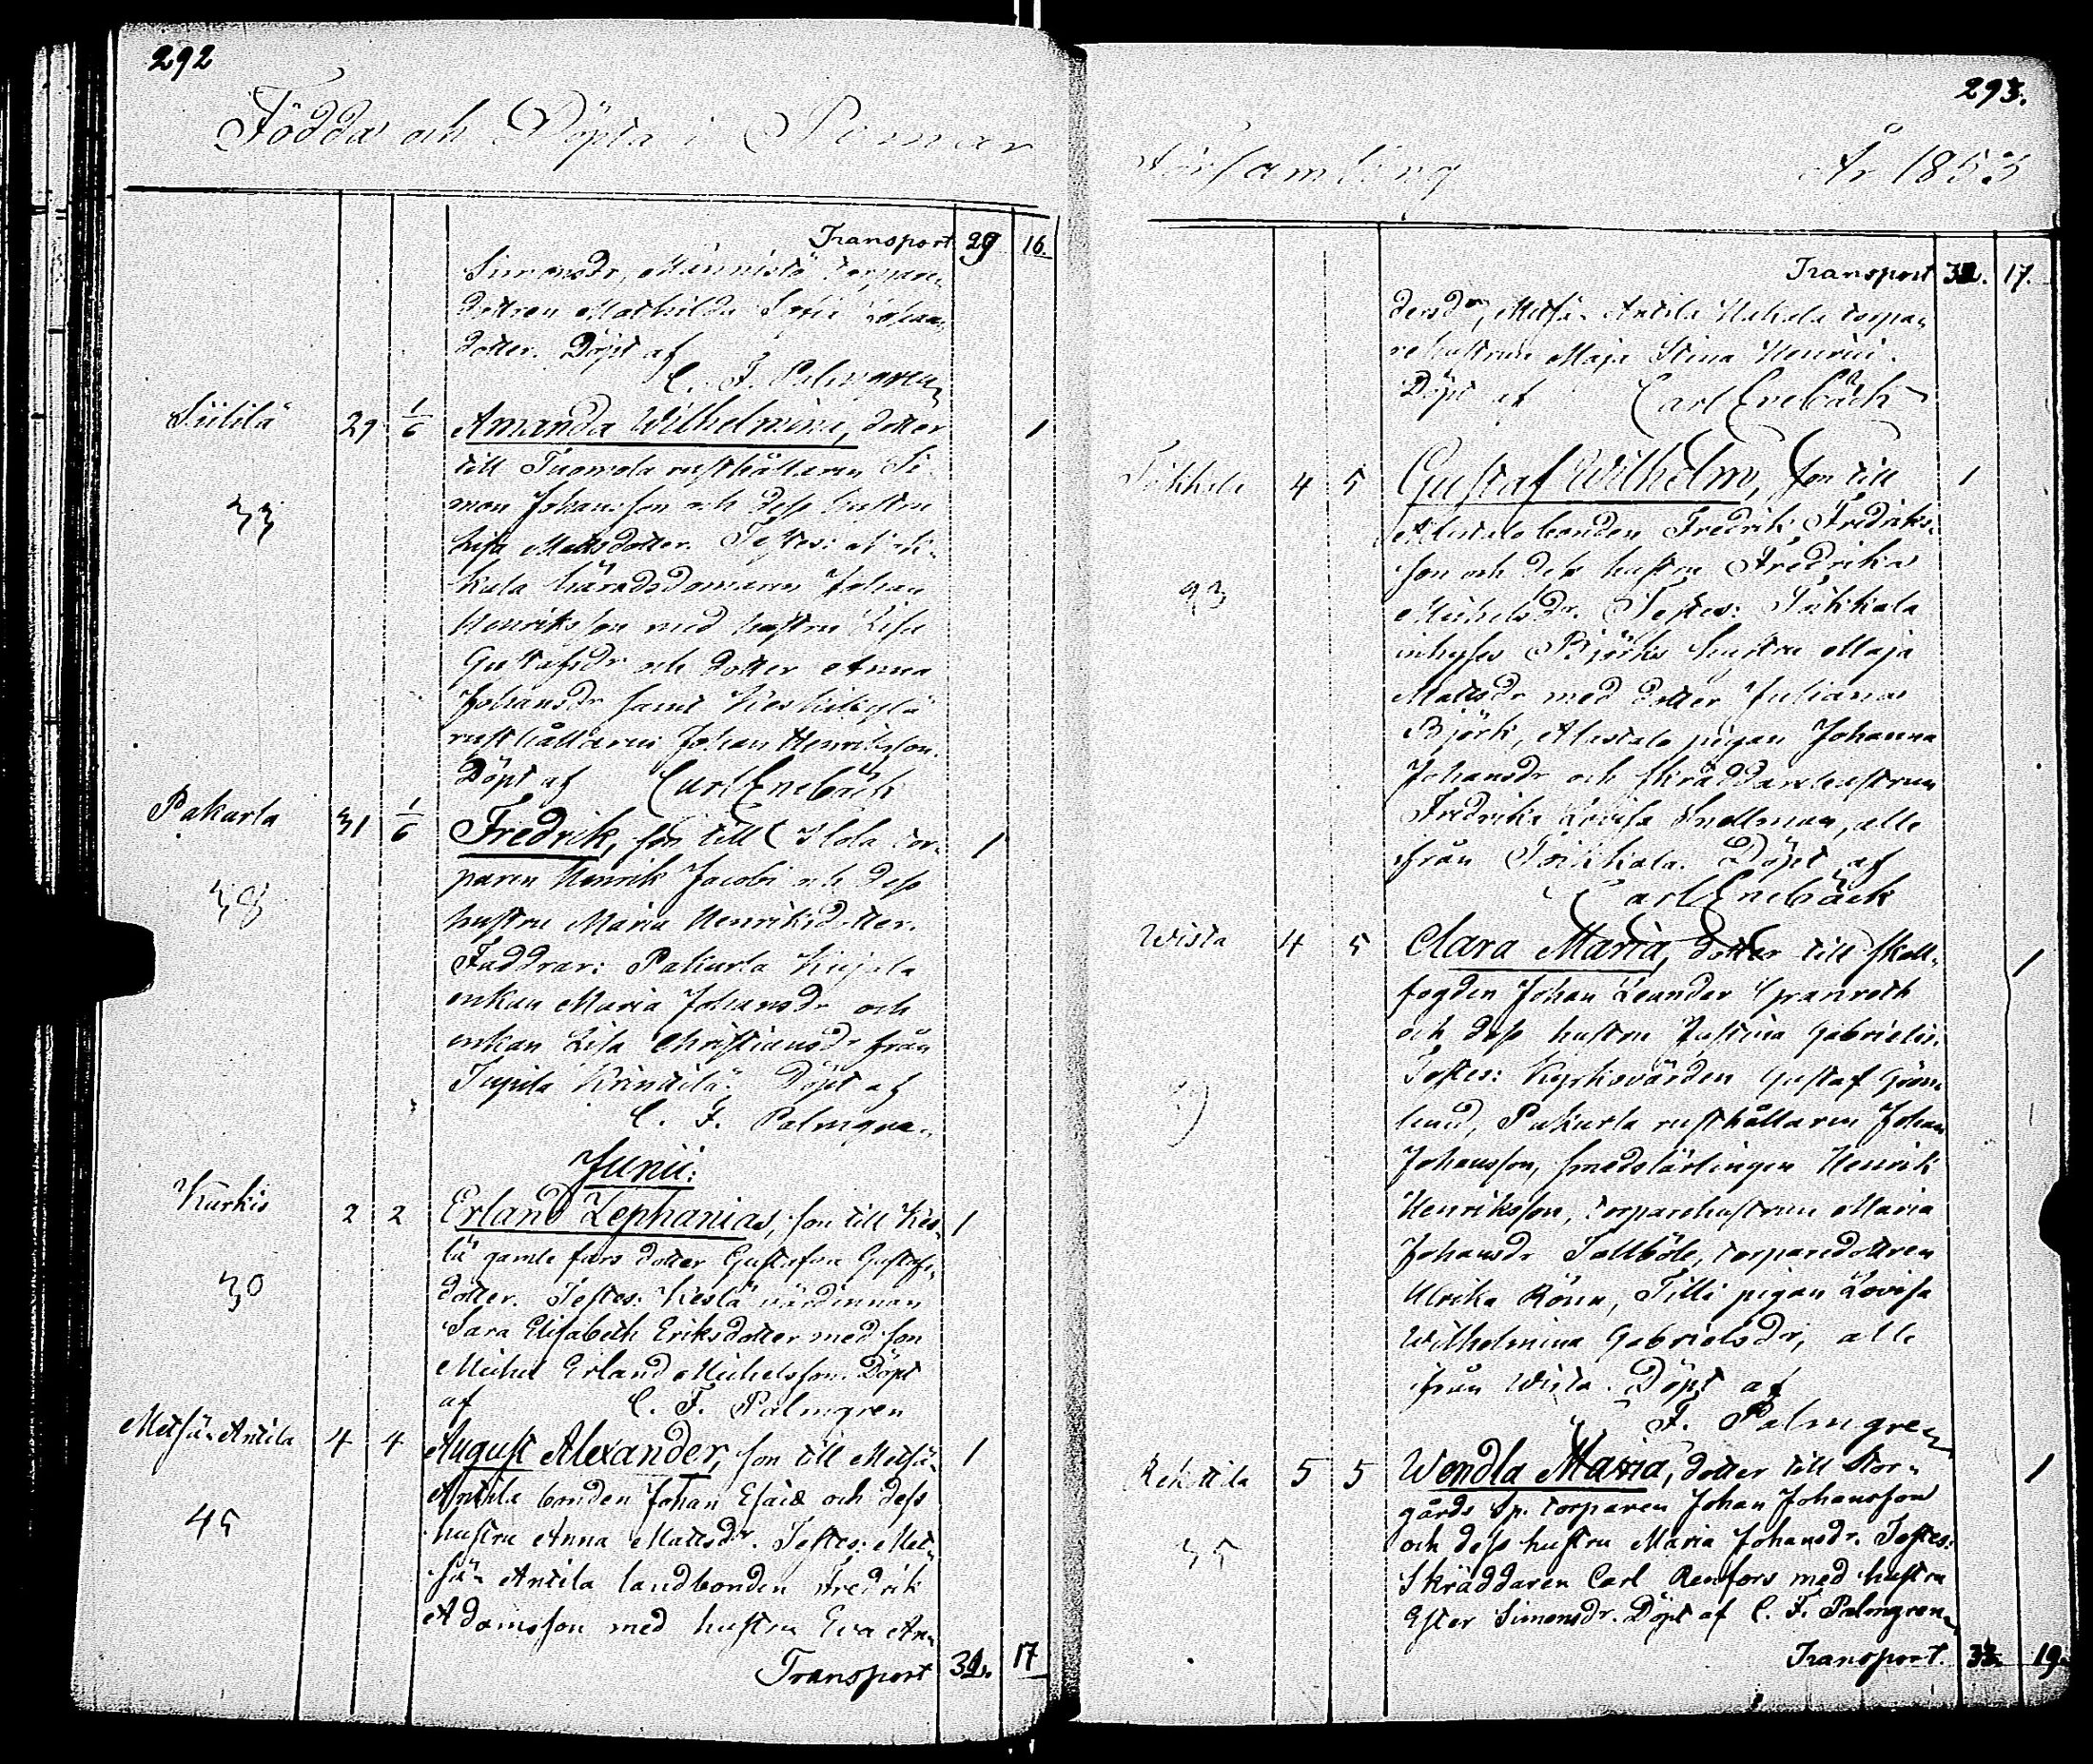 292
Födda och Döpta i Pemar
Transport 29 16.
Simonsdr, Männistö torpare
dottren Mathilda Sofia Johans
dotter. Döpt af
C. F. Palmgren
Siililä 29 1/6 Amanda Wilhelmina, dotter 1
till Tuomola rusthållaren Si-
33 mon Johansson och dess hustru
Lisa Mattsdotter. Testes:
kula häradsdomaren Johan
Henriksson med hustru Lisa
Gustafsdr och dotter Anna
Johansdr samt Keskikylä
rusthållaren Johan Henriksson.
Döpt af Carl Enebäck
Pakurla 31 1/6 Fredrik, son till IsLola tor- 1
paren Henrik Jacobi och dess
38 hustru Maria Henriksdotter.
Faddrar: Pakurla Kujala
enkan Maria Johansdr och
enkan Lisa Christiansdr från
Krintilä. Döpt af
C. F. Palmgren
Junii:
Kurkis 2 2 Erland Zephanias, son till Kes- 1
lä gamle fars dotter Gustafva Gustafs-
30 dotter. Testes: Keslä värdinnan
Sara Elisabeth Eriksdotter med son
Michel Erland Michelsson. Döpt
af C. F. Palmgren
Metsä-Antila 4 4 August Alexander, son till Metsä- 1
Antila bonden Johan Esaiæ och dess
45 hustru Anna Mattsdr. Testes: Met-
sä-Antila landbonden Fredrik
Adamsson med hustru Eva An-
Transport 31. 17
293.
Församling År 1853
Transport 31. 17.
dersdr, Metsä-Antila Uukala torpa-
rehustrun Maja Stina Henrici.
Döpt af Carl Enebäck
Tökkala 4 5 Gustaf Wilhelm, son till 1
Alastalo bonden Fredrik Fredriks-
son och dess hustru Fredrika
93 Michelsdr. Testes: Tökkala
inhyses Björks hustru Maja
Mattsdr med dotter Juliana
Björk, Alastalo pigan Johanna
Johansdr och skräddarehustrun
Fredrika Lovisa Snellman, alle
från Tökkala. Döpt af
Carl Enebäck
Wista 4 5 Clara Maria, dotter till skall- 1
fogden Johan Leander Granroth
och dess hustru Justina Gabrielis.
Testes: Kyrkovärden Gustaf Grön-
lund, Pakurla rusthållaren Johan
Johansson, smedslärlingen Henrik
Henriksson, torparehustrun Maria
Johansdr Tallböle, torparedottren
Ulrika Rönn, Tilli pigan Lovisa
Wilhelmina Gabrielsdr, alle
från Wista. Döpt af
C. F. Palmgren
Rekottila 5 5 Wendla Maria, dotter till Stor- 1
gårds Sp. torparen Johan Johansson
och dess hustru Maria Johansdr. Testes:
35 Skräddaren Carl Renfors med hustru
Ester Simonsdr. Döpt af C. F. Palmgren
Transport. 32. 19.